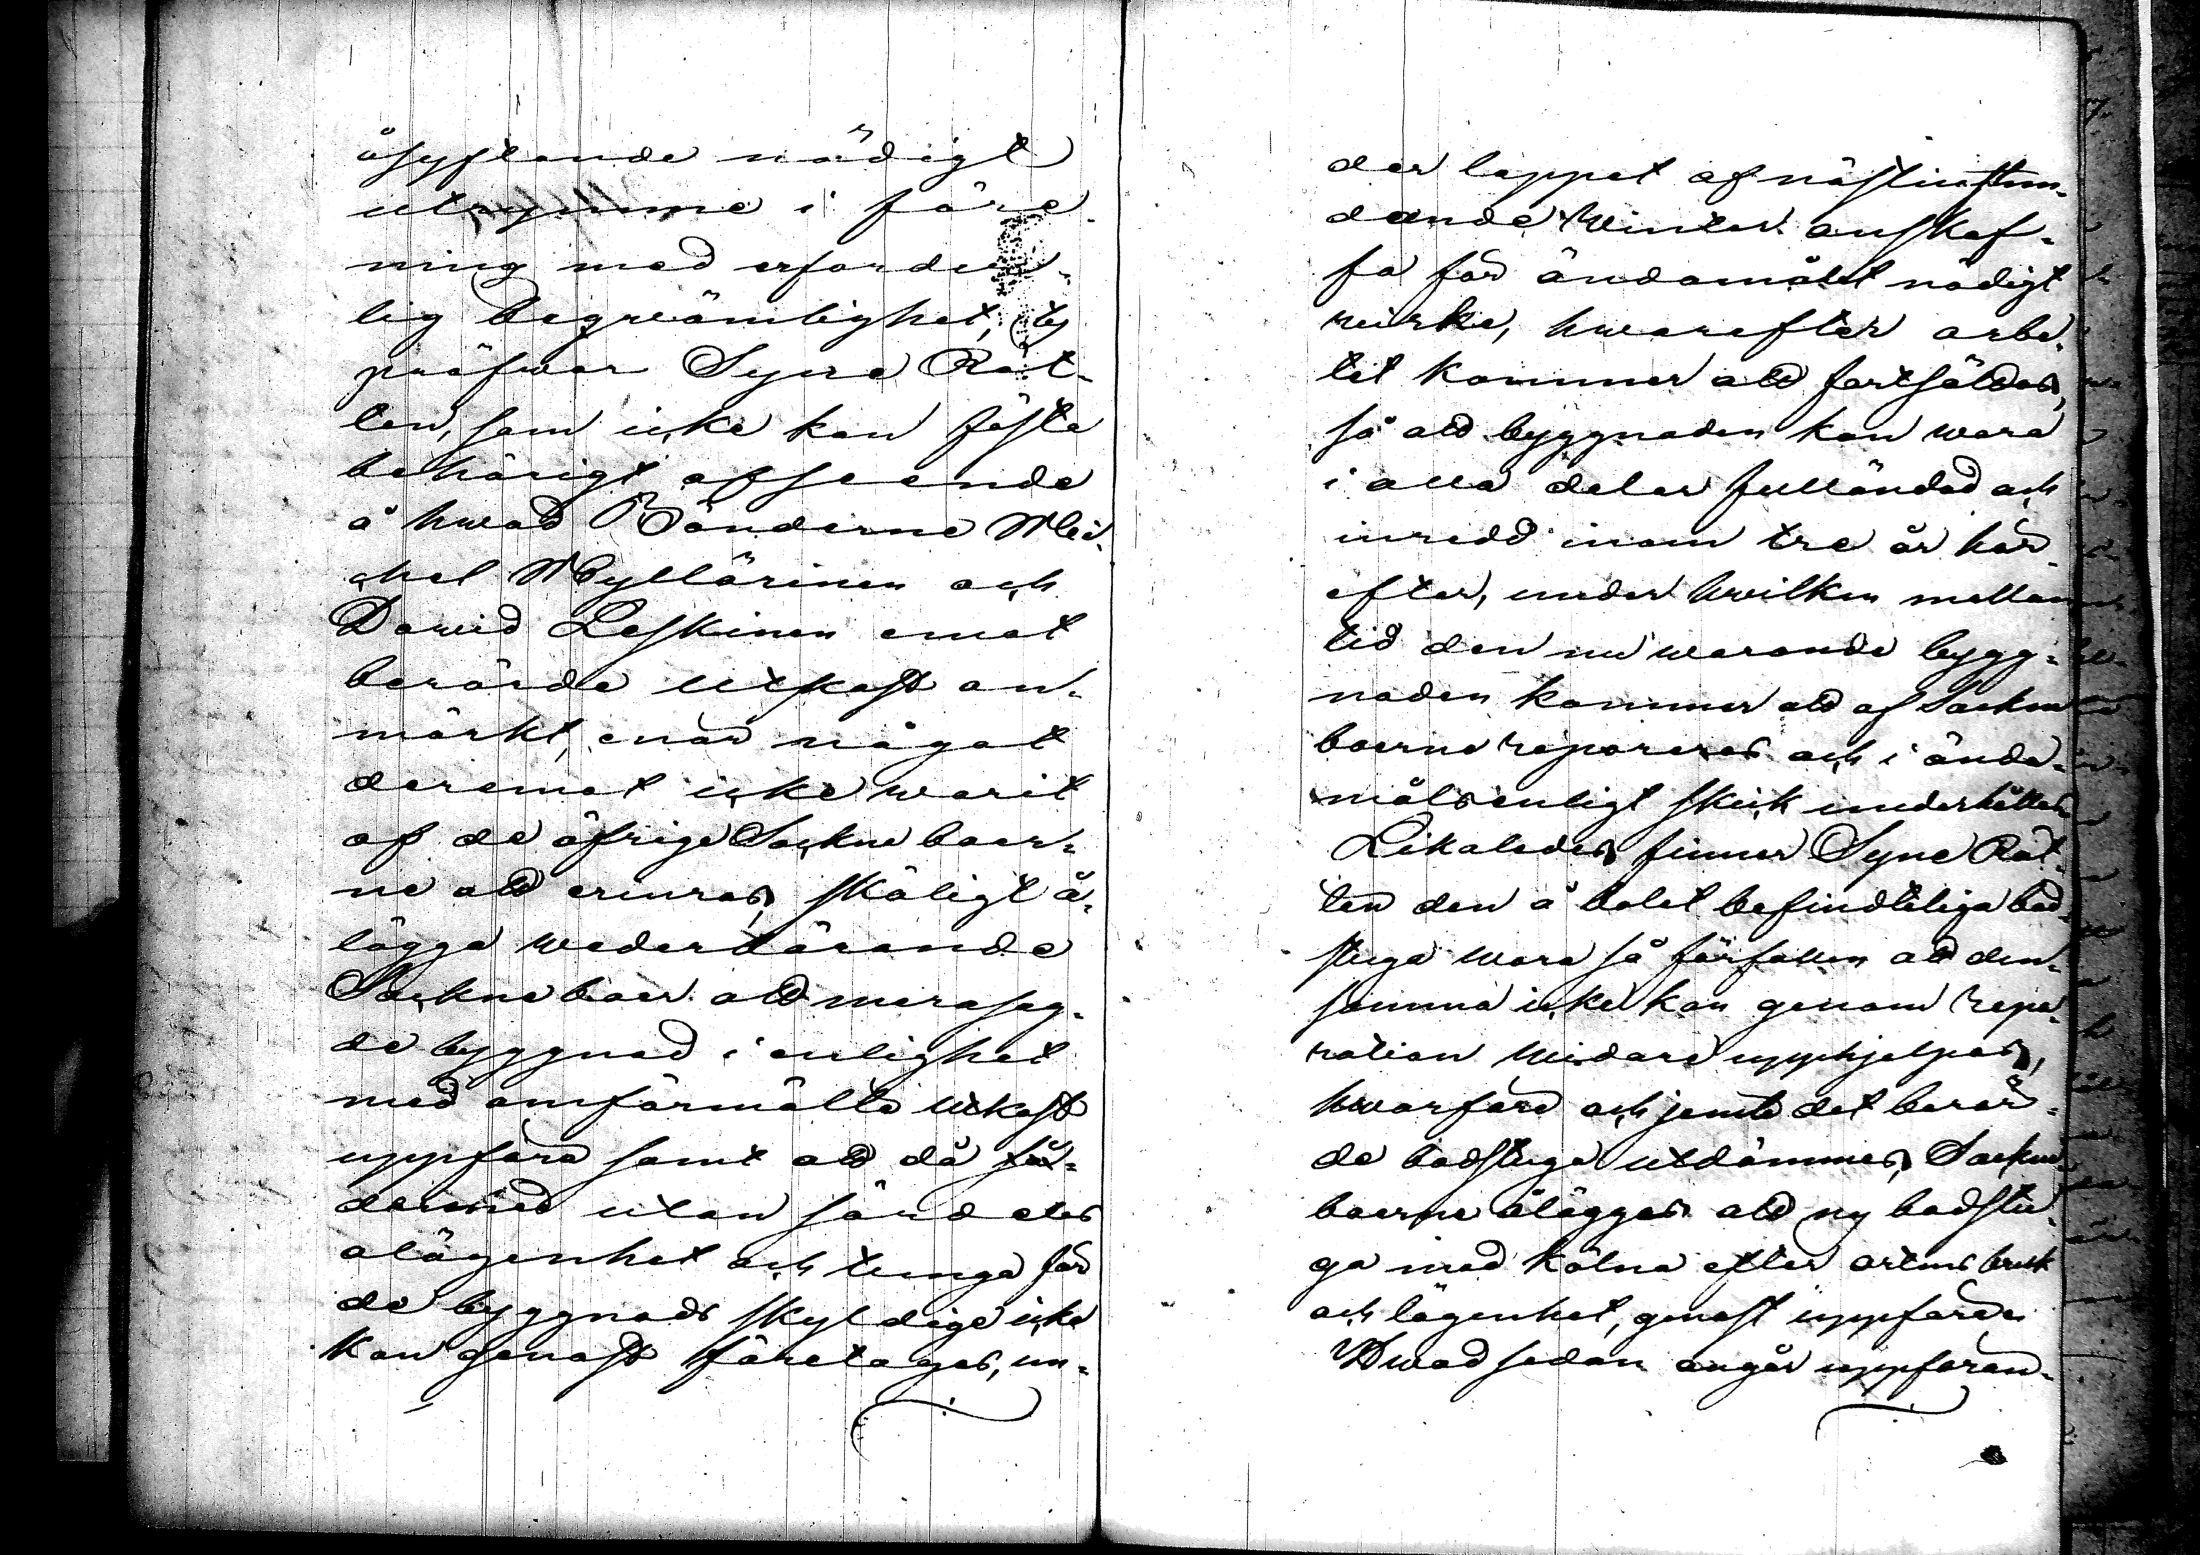 åsyftande nödigt
utrymme i före¬
ning med erforder¬
lig beqwämlighet, ty
pröfwar Syne Rät¬
ten, som icke kan fästa
behörigt afseende
å hwad Bönderne Mic¬
chel Myllärinen och
Dawid Leskinen emot
berörde utkast an¬
märkt, enär något
deremot icke warit
af de öfrige Sockneboer¬
ne att erinras, skäligt å¬
lägga wederbörande
Sockneboer att merasag¬
de byggnad i enlighet
med omförmälte utkast
uppföra samt att då så¬
dermed utan särdeles
olägenhet och tunga för
de byggnads skyldige icke
kan genast företagas, un¬
der loppet af nästinstun¬
dande Winter anskaf¬
fa för ändamålet nödigt
wirke, hwarefter arbe¬
tet kommer att fortsättas,
så att byggnaden kan wara
i alla delar fulländad och
inredd inom tre år här¬
efter, under hwilken mellan
tid den nu warande bygg¬
naden kommer att af Sockne
boerne repareras och i ända¬
målsenligt skick underhållas
Likaledes finner Syne Rät¬
ten den å bolet befindteliga bad
stuga wara så förfallen att den¬
samma icke kan genom repa¬
ration widare upphjelpas,
hwarföre och jemte det berör¬
de badstuga utdömmes, Sockne
boerne ålägges att ny badstu¬
ga med kölna efter ortens bruk
och lägenhet, genast uppföra
Hwad sedan angår uppföran¬